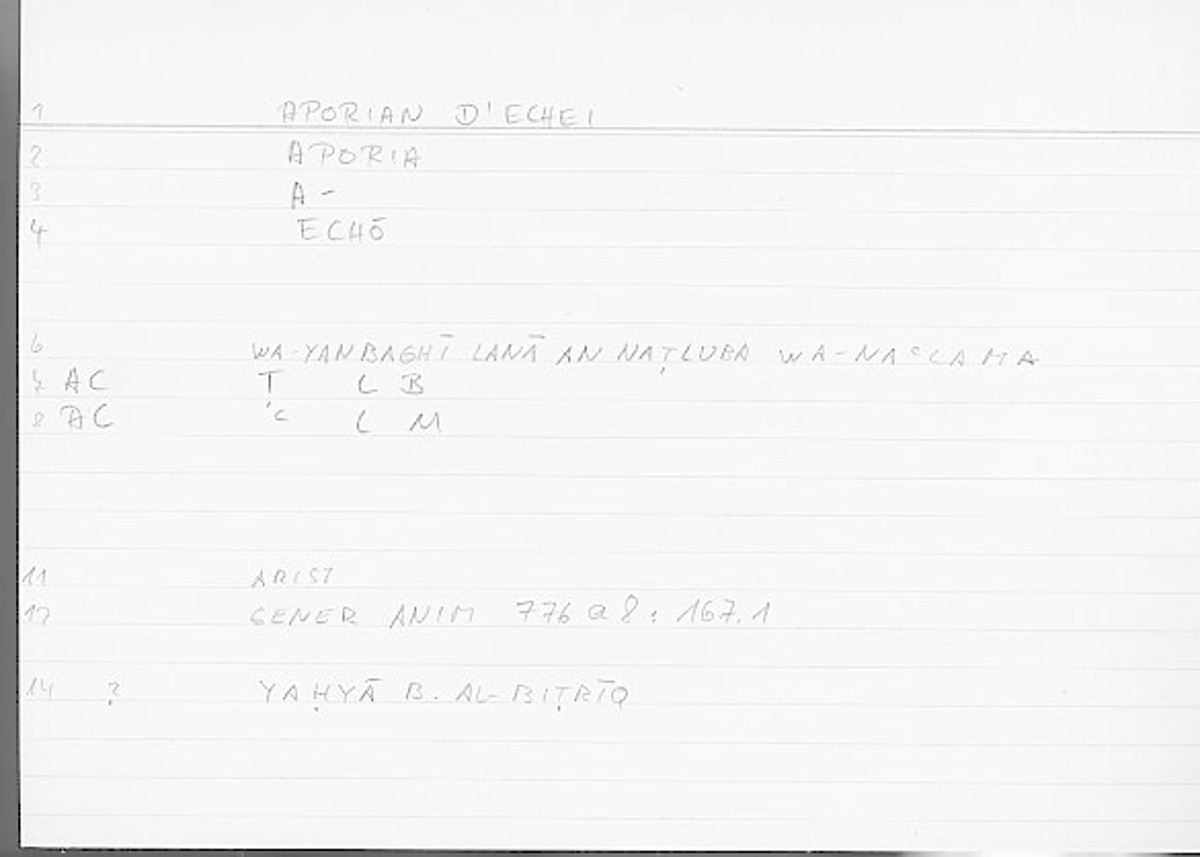 1 APORIAN D'ECHEI
2 APORIA
3 A-
4 ECHŌ
6 WA-YANBAGHĪ LANĀ AN NAṬLUBA WA-NAʿLAMA
7 AC Ṭ L B
8 AC ʿ L M
11 ARIST
12 GENER ANIM 776 a 8 : 167.1
14 ? YAḤYĀ B. AL-BIṬRĪQ